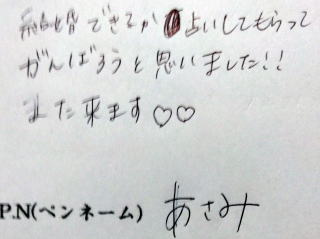 結婚できてか占いしてもらって
がんばろうと思いました!!
また来ます♡♡
P.N(ペンネーム) あさみ